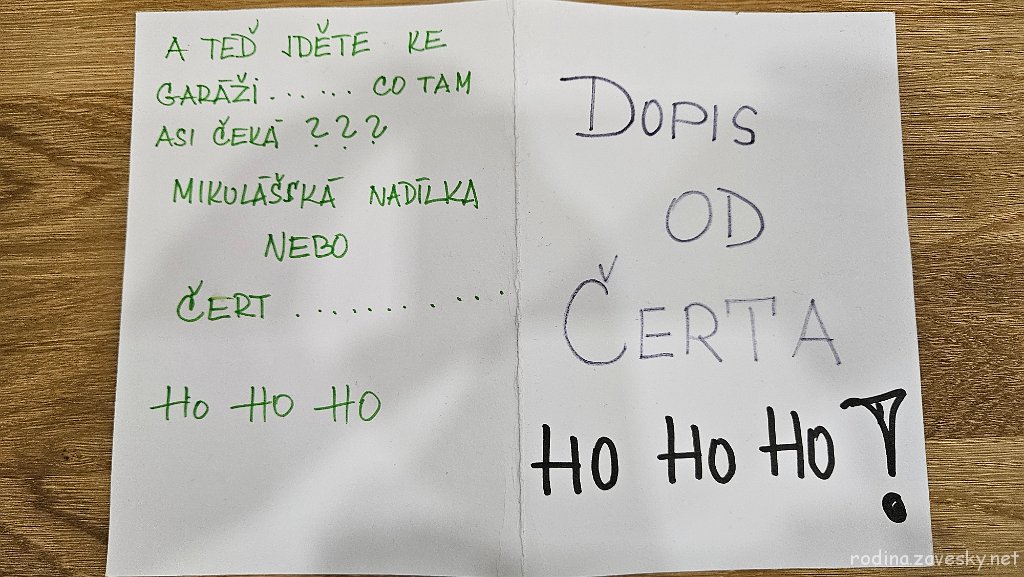 A TEĎ JDĚTE KE
GARÁŽI...... CO TAM
ASI ČEKÁ ???
MIKULÁŠSKÁ NADÍLKA
NEBO
ČERT ..........
HO HO HO
DOPIS
OD
ČERTA
HO HO HO!
rodina.zavesky.net